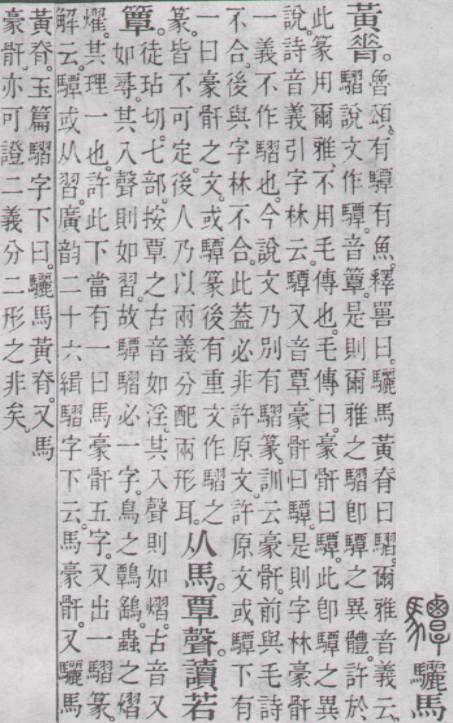 驔 驪馬
黃脊。
魯頌。有驔有魚。釋嘼曰。驪馬黃脊曰騽。爾雅音義云。
騽說文作驔。音簟。是則爾雅之騽卽驔之異體。許於
此篆用爾雅。不用毛傳也。毛傳曰。豪骭曰驔。此卽驔之異
說。詩音義引字林云。驔又音覃。豪骭曰驔。是則字林豪骭
一義不作騽也。今說文乃別有騽篆。訓云豪骭。前與毛詩
不合。後與字林不合。此蓋必非許原文。許原文或驔下有
一曰豪骭之文。或驔篆後有重文作騽之
篆。皆不可定。後人乃以兩義分配兩形耳。
从馬。覃聲。讀若
簟。
徒玷切。七部。按覃之古音如淫。其入聲則如熠。古音又
如尋。其入聲則如習。故驔騽必一字。鳥之鷣鷂。蟲之熠
燿。其理一也。許此下當有一曰馬豪骭五字。又出一騽篆。
解云。驔或从習。廣韵二十六緝騽字下云。馬豪骭。又驪馬
黃脊。玉篇騽字下曰。驪馬黃脊。又馬
豪骭。亦可證二義分二形之非矣。